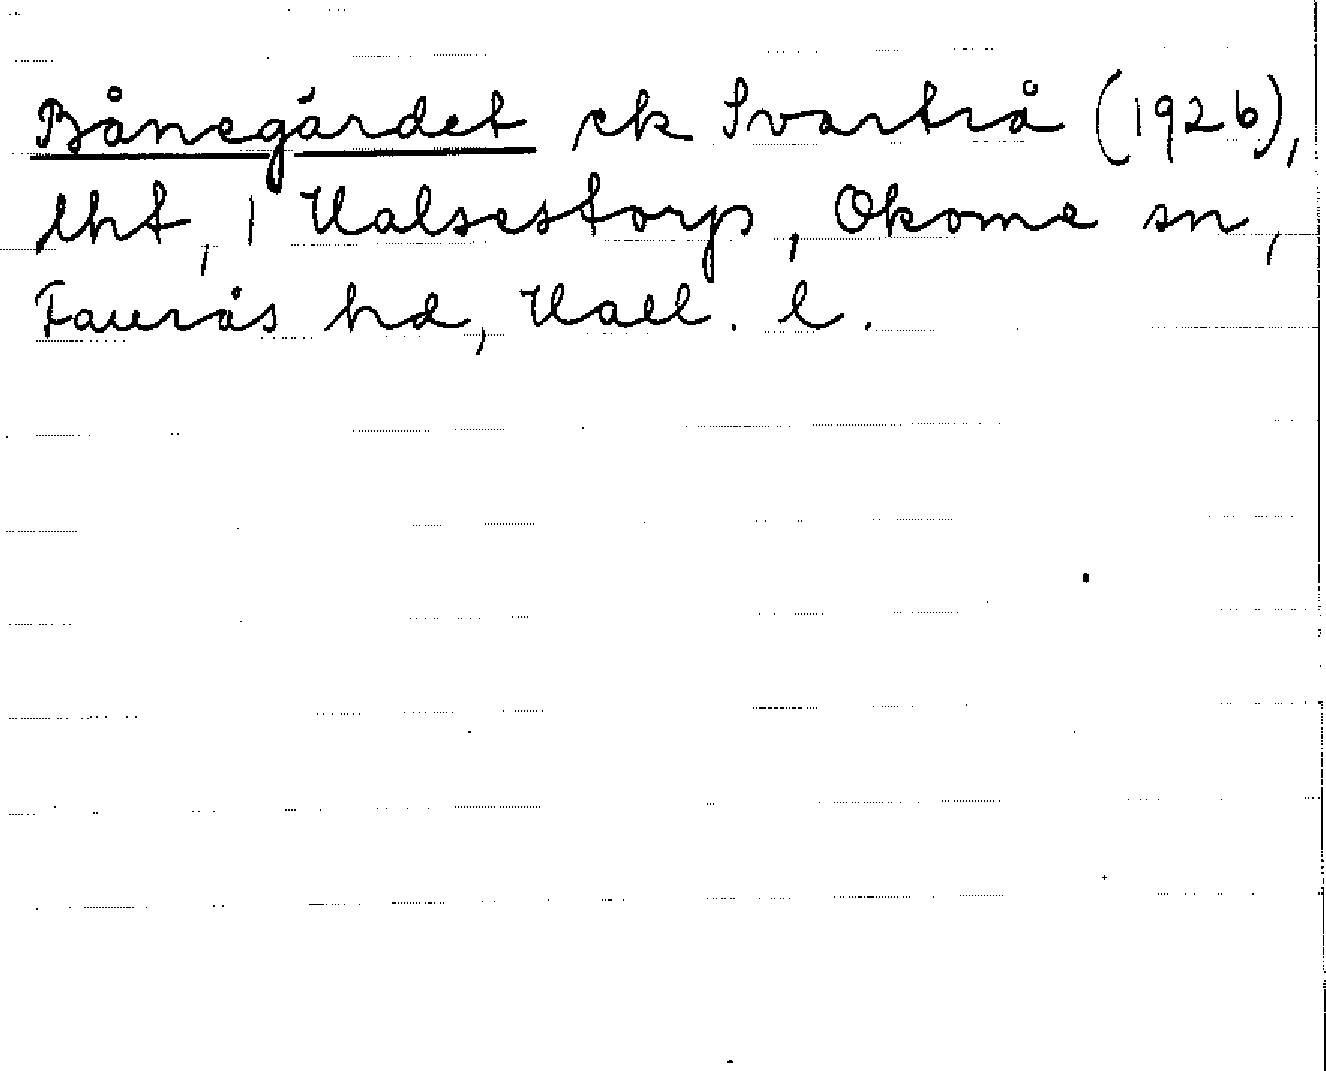 Bånegärdet ek Svartrå (1926),
lht, i Ualsestorp, Okome sn,
Faurås hd, Hall. l.